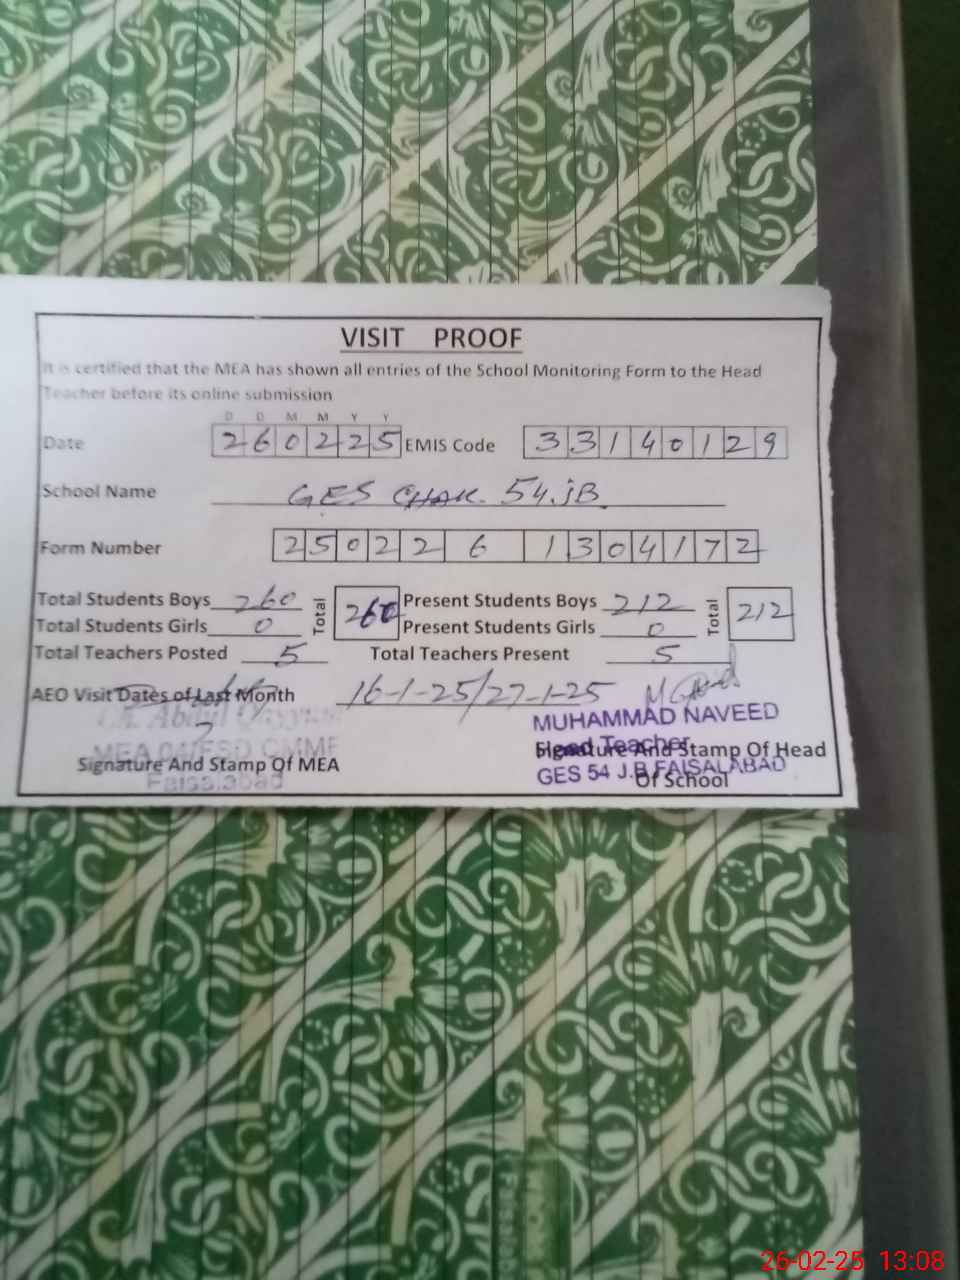 VISIT PROOF
It is certified that the MEA has shown all entries of the School Monitoring Form to the Head
Teacher before its online submission
D D M M Y Y
Date 260225 EMIS Code 33140129
School Name GES CHAK. 54.JB
Form Number 2502261304172
Total Students Boys 260 Total 260 Present Students Boys 212 Total 212
Total Students Girls 0 Present Students Girls 0
Total Teachers Posted 5 Total Teachers Present 5
AEO Visit Dates of Last Month 16-1-25/27-1-25
Ch. Abdul Qayyum
MUHAMMAD NAVEED
MEA 04/FSD CMMF
Head Teacher
Signature And Stamp Of MEA Signature And Stamp Of Head
Faisalabad
GES 54 J.B FAISALABAD
Of School
26-02-25 13:08